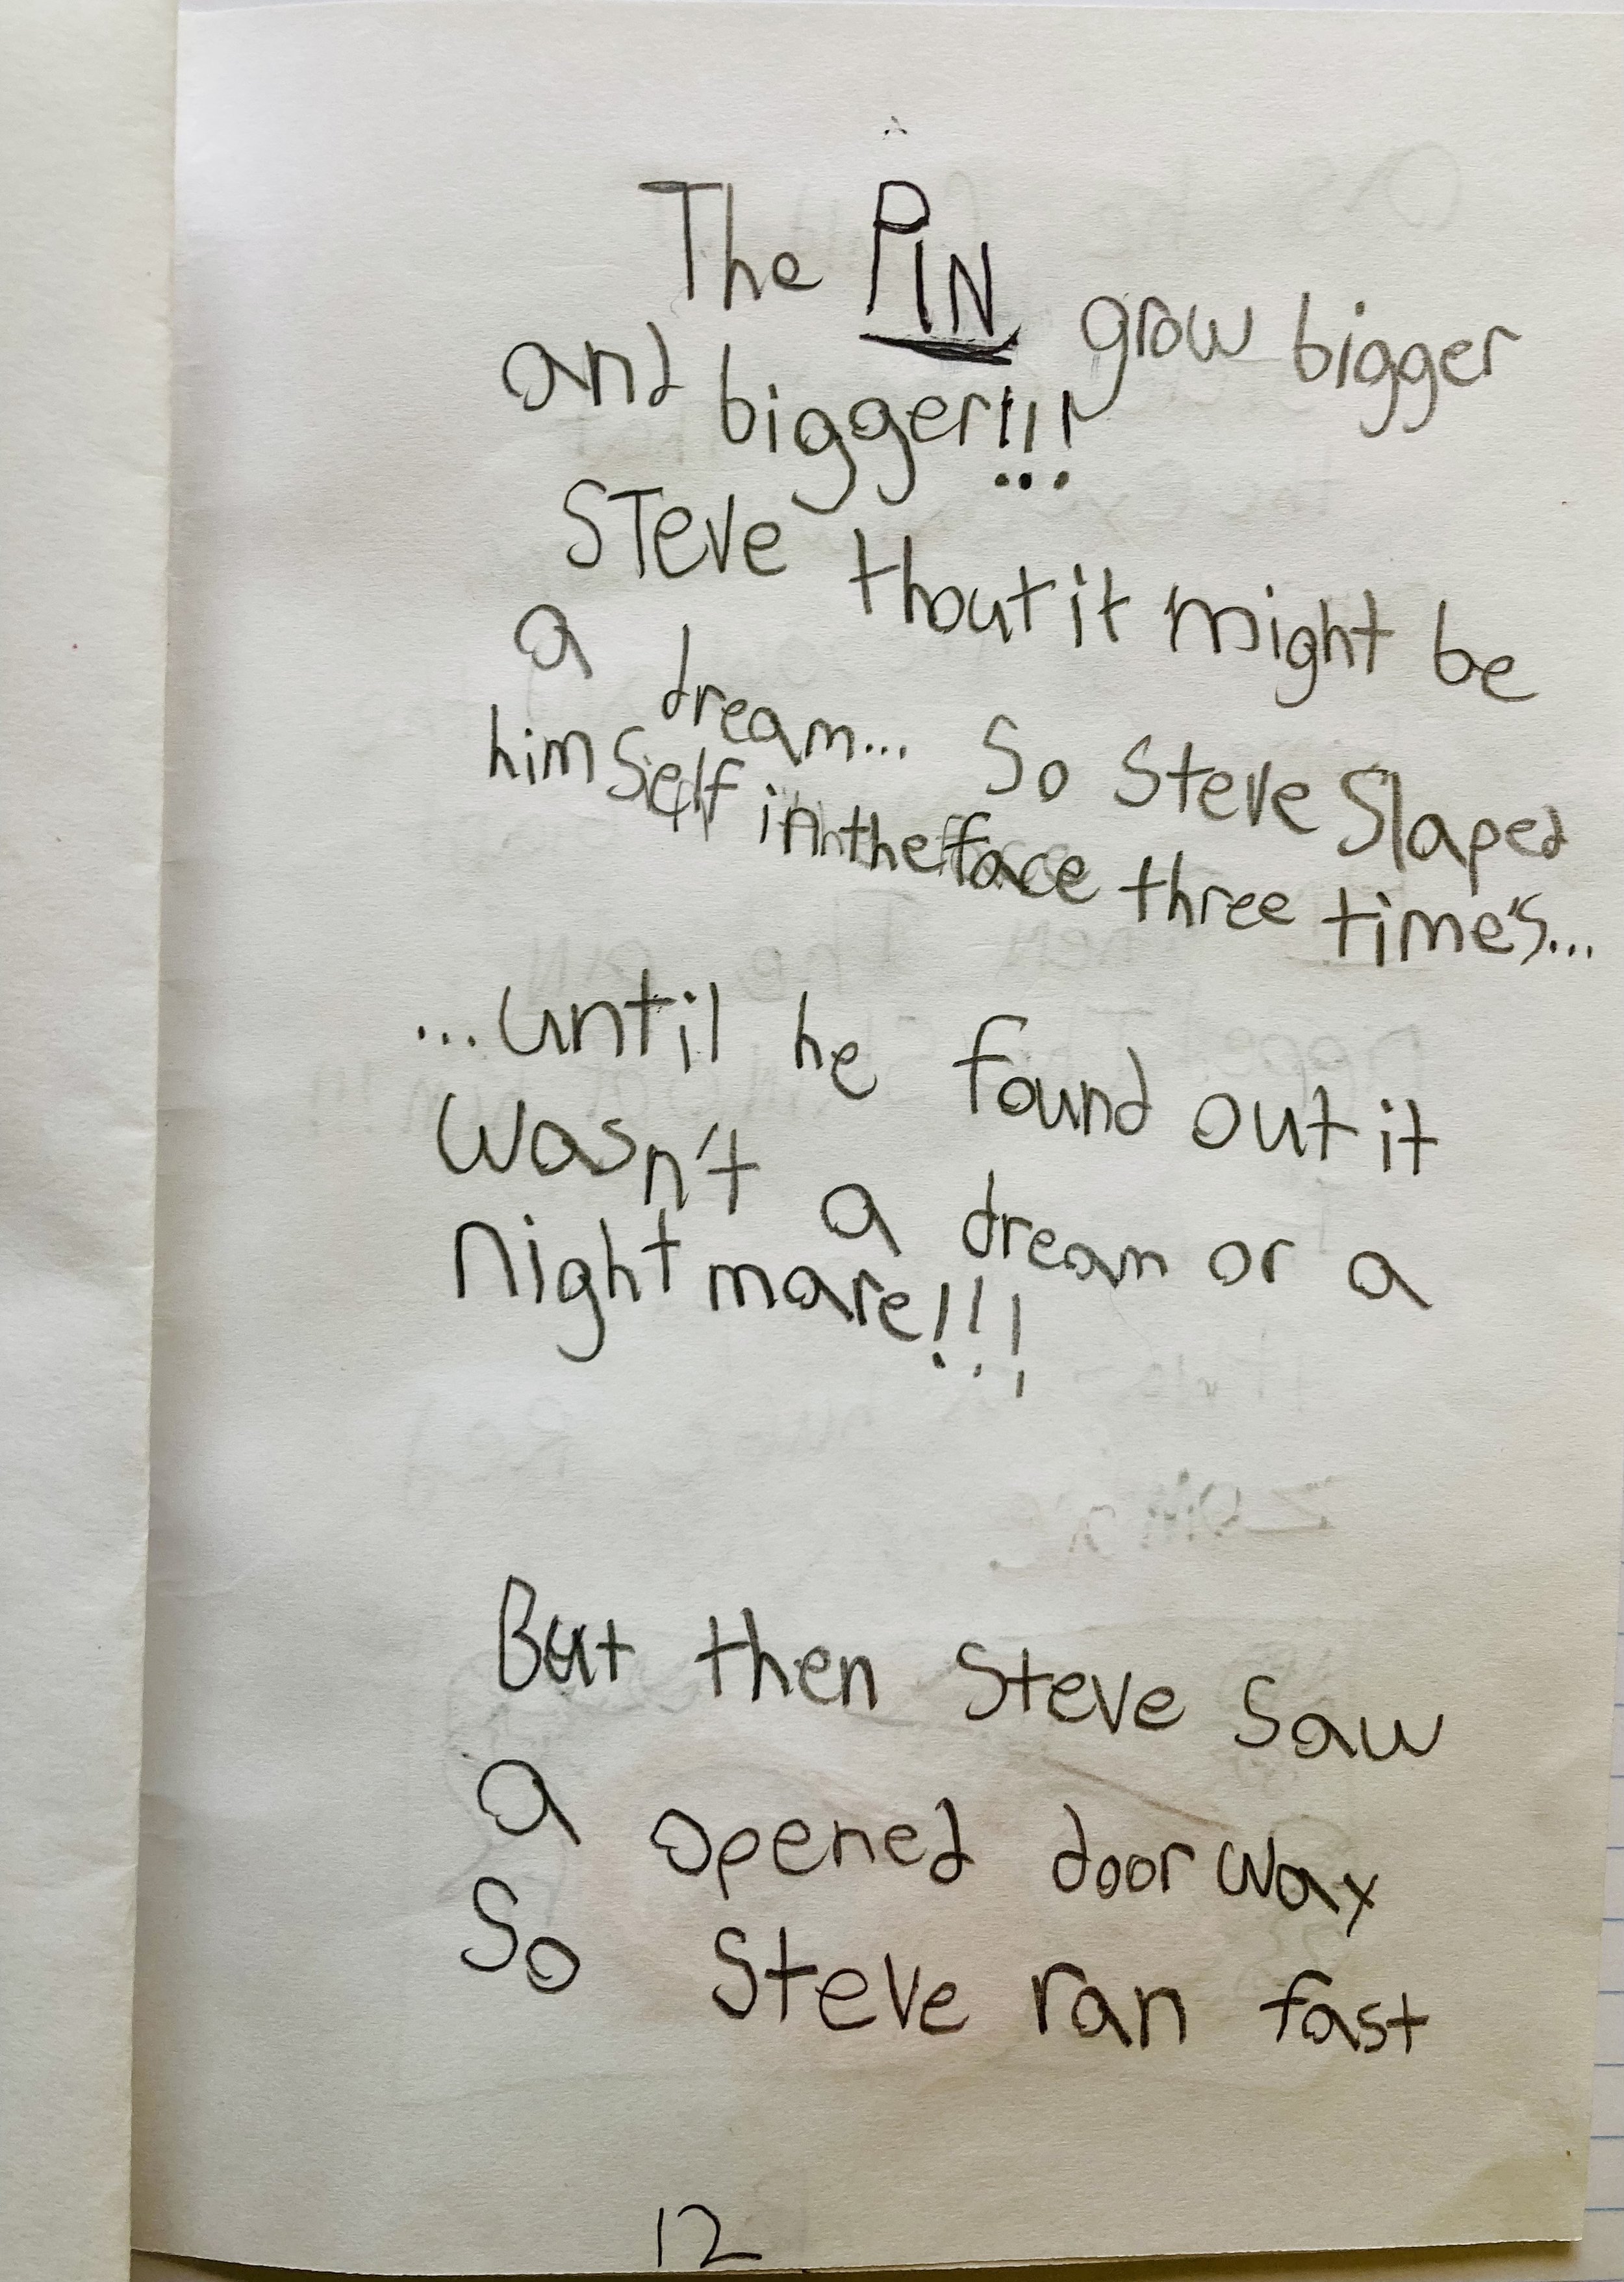 The PIN grow bigger
and bigger!!!
STeve thout it might be
a dream... So Steve Slaped
himself in the face three time's...
...until he found out it
wasn't a dream or a
night mare!!!
But then Steve saw
a opened door way
So Steve ran fast
12